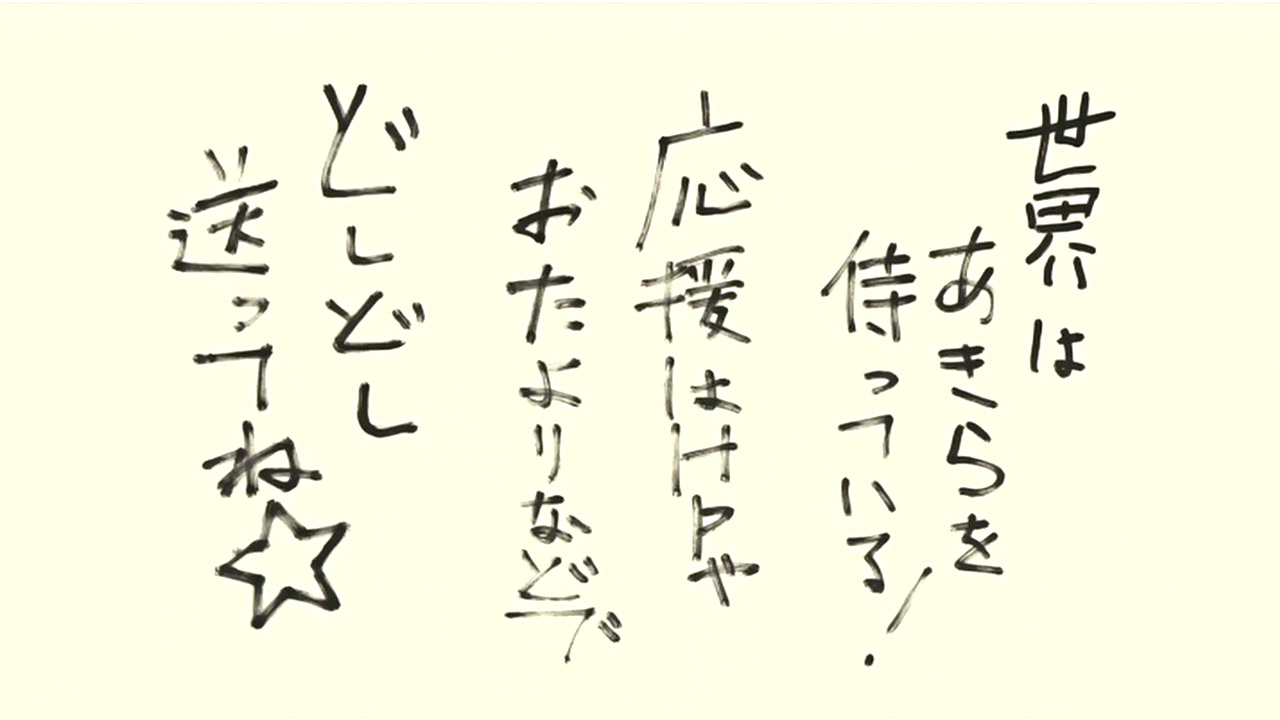 世界は
あきらを
侍っている!
応援はHPや
おたよりなどで
どしどし
送ってね☆